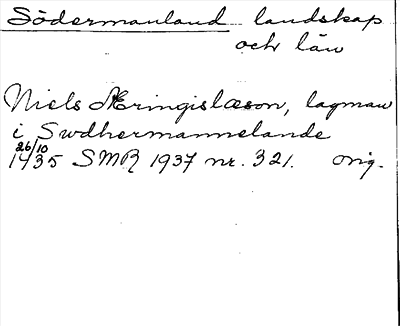 Södermanland landskap
och län
Niels Æringislæson, lagman
i Swdhermannelande
26/10
1435 SMR 1937 nr. 321. orig.